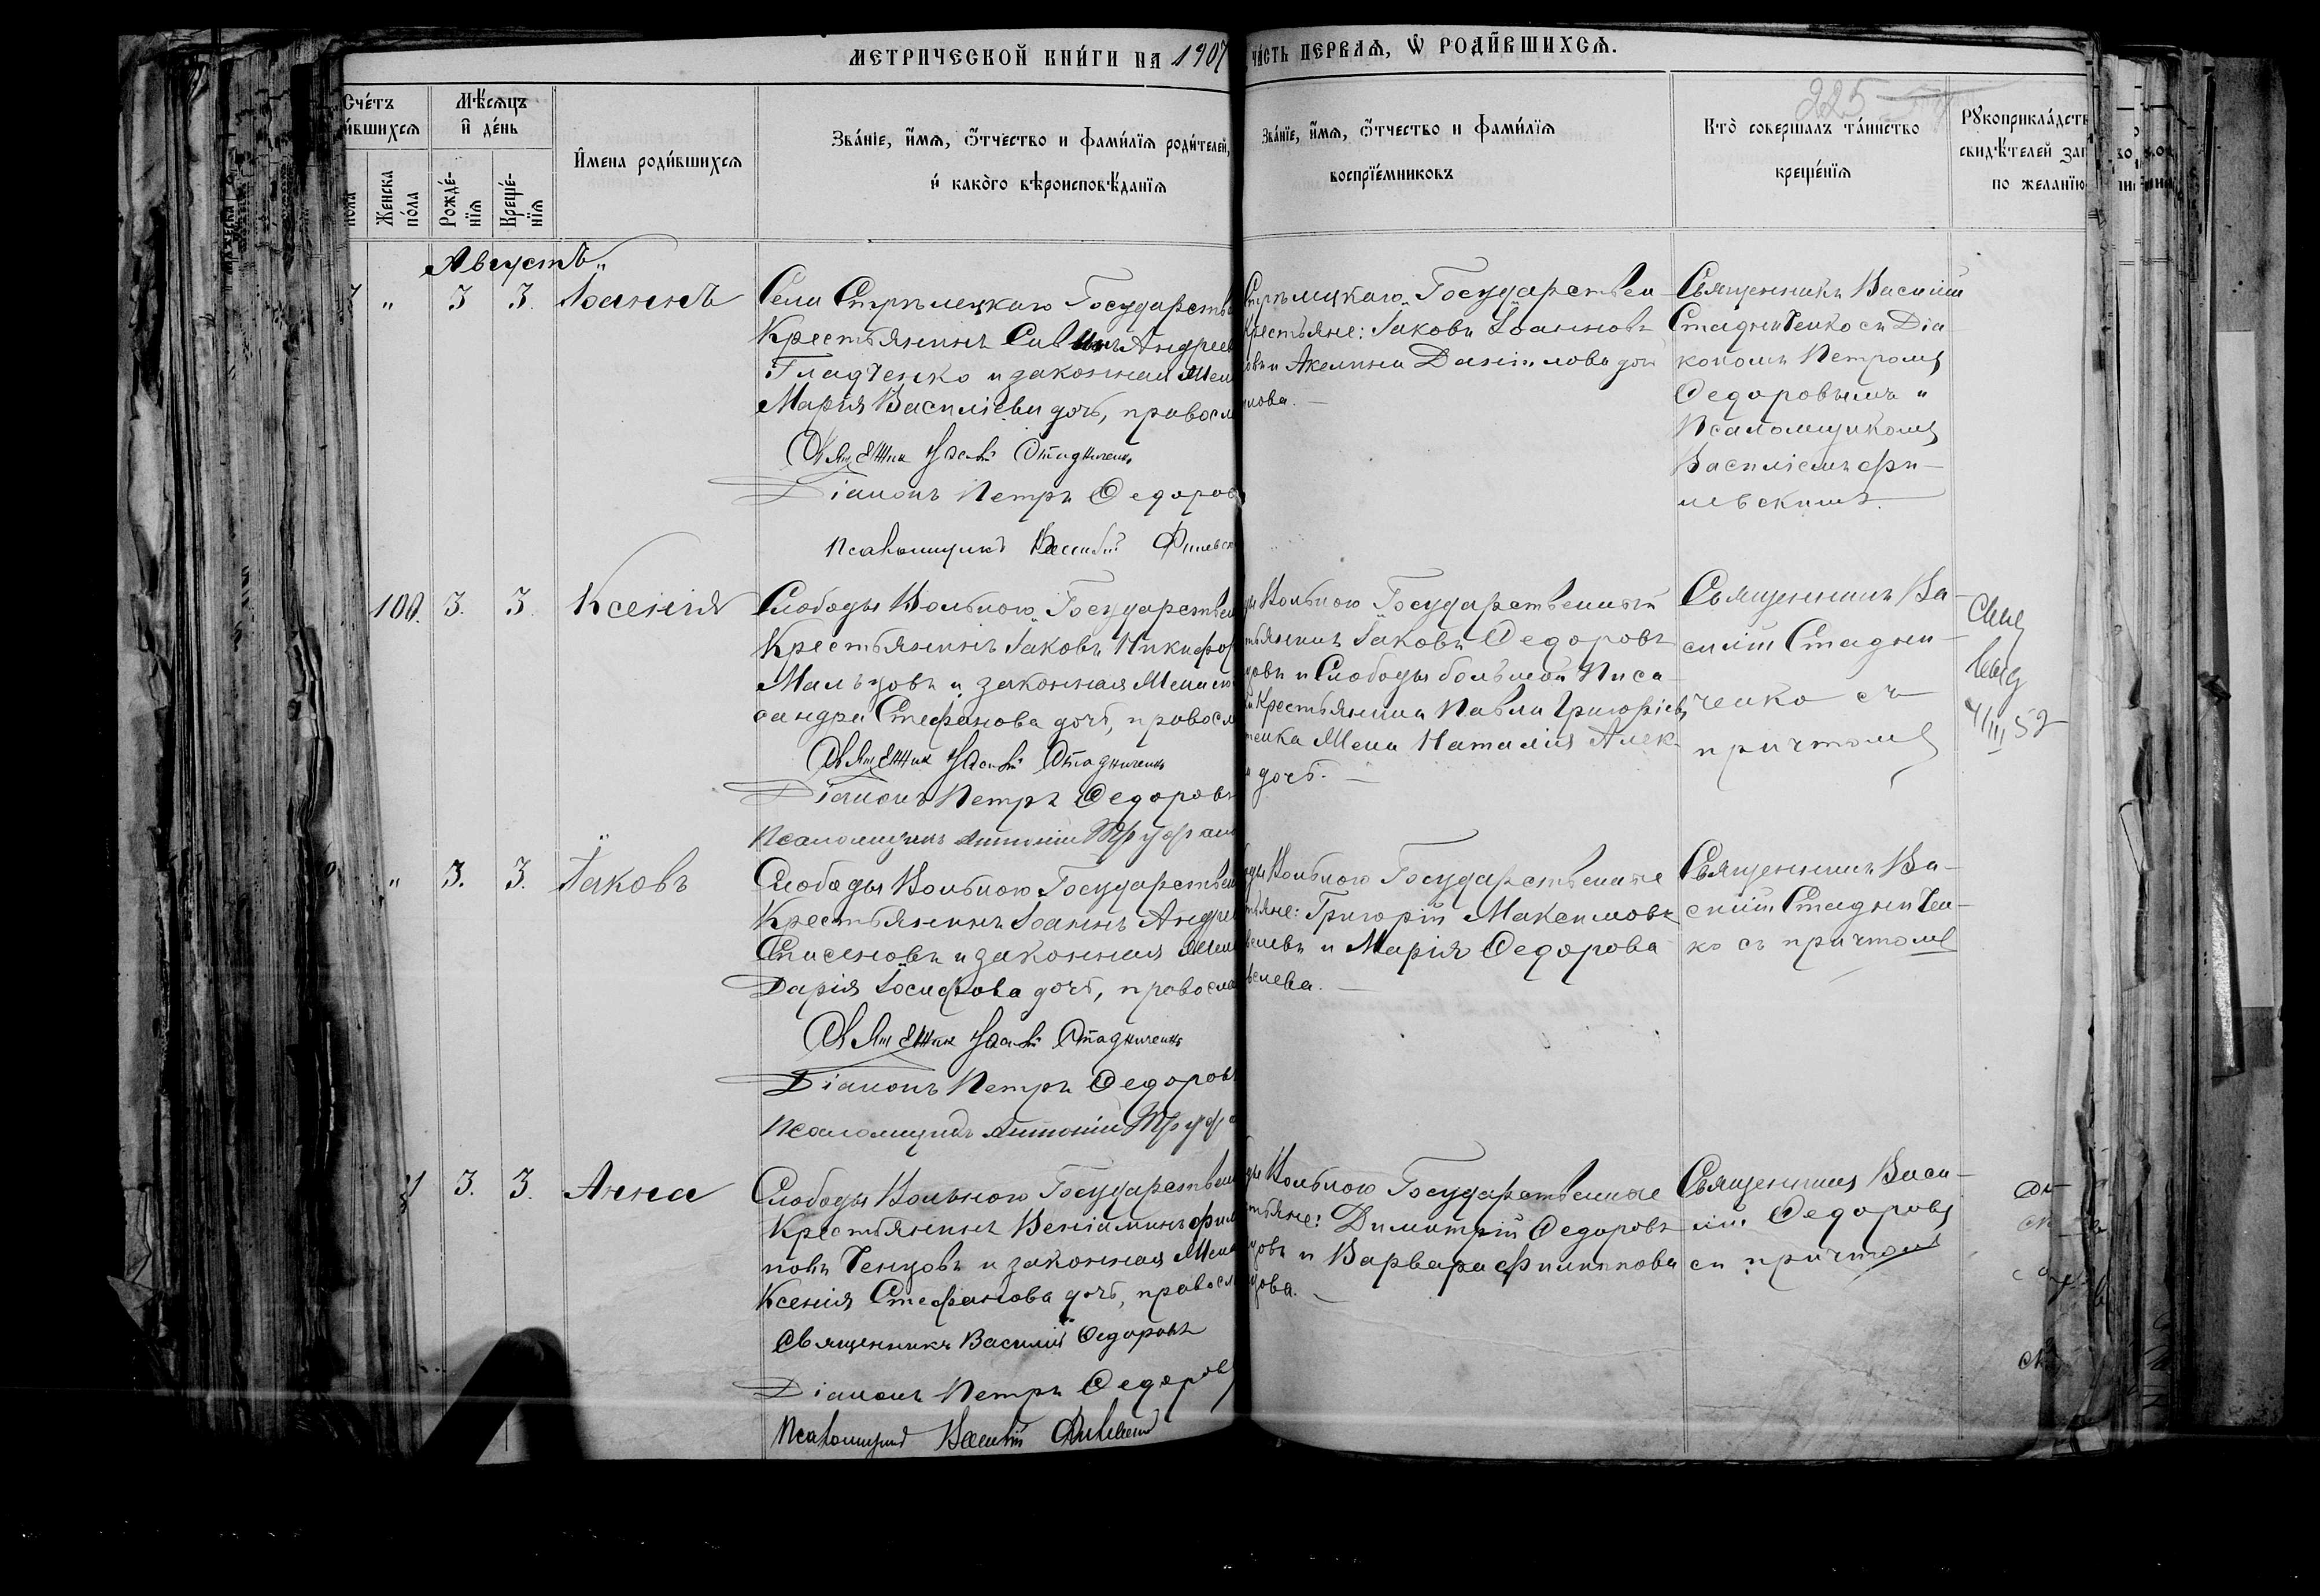 МЕТРИЧЕСКОЙ КНИ́ГИ НА 1907
ЧА́СТЬ ПЕРВАЯ, Ѡ РОДИ́ВШИХСЯ.
225
Счéтъ
и́вшихся
Мѣ́сяцъ
и҆ дéнь
пола
Женска
пóла
Рождé-
нїя
Крещé-
нїя
И҆мена роди́вшихся
Звáнїе, и҆́мя, ѻ҆́тчество и фами́лїя роди́телей,
и҆ какóго вѣроисповѣ́данїя
Звáнїе, и҆́мя, ѻ҆́тчество и фами́лїя
воспрїéмниковъ
Ктò совершалъ тáинство
крещéнїя
Рꙋкоприклáдств
свидѣ́телей зап
по желанїю
Августъ
" 3 3. Іоаннъ
Села Стрѣлецкаго Государств
Крестьянинъ Андреев
Гладченко и законная Жен
Марія Василіева дочь, правосл
Священник Васил Стадниченко
Діаконъ Петръ Федоров
Псаломщикъ Василій Филевск
Стрѣлецкаго Государствен
Крестьяне: Іаковъ Іоанновъ
овъ и Акелина Даніилова доч
лова. —
Священникъ Василій
Стадниченко съ Діа
кономъ Петромъ
Федоровымъ и
Псаломщикомъ
Василіемъ Фи-
левскимъ.
100. 3. 3. Ксенія
Слободы Вольного Государствен
Крестьянинъ Іаковъ Никифор
Мальцовъ и законная Жена
сандра Стефанова дочь, правосл
Священник Васил Стадниченко
Діаконъ Петръ Федоровъ
Псаломщикъ Антоній Труфан
ды Вольного Государственный
тьянинъ Іаковъ Федоровъ
цовъ и Слободы большой Писа-
Крестьянина Павла Григоріев
тенка Жена Наталія Алек-
дочь. —
Священникъ Ва-
силій Стадни-
ченко съ
причтомъ
4/III 52
" 3. 3. Іаковъ
Слободы Вольного Государствен
Крестьянинъ Іоаннъ Андрее
и законная Жена
Дарія Іосифова дочь, правосла
Священник Васил Стадниченко
Діаконъ Петръ Федоровъ
Псаломщикъ Антоній Труфа
ды Вольного Государственные
тьяне: Григорій Максимовъ
и Марія Федорова
елева. —
Священникъ Ва-
силій Стаднičен-
ко съ причтомъ
3. 3. Анна
Слободы Вольного Государствен
Крестьянинъ Веніаминъ Фили
повъ Ченцовъ и законная Жена
Ксенія Стефанова дочь, правосл
Священникъ Василій Федоровъ
Діаконъ Петръ Федоровъ
Псаломщикъ Василій Филевскій
ды Вольного Государственные
тьяне: Димитрій Федоровъ
цовъ и Варвара Филиппова
цова. —
Священникъ Васи-
лій Федоровъ
съ причтомъ